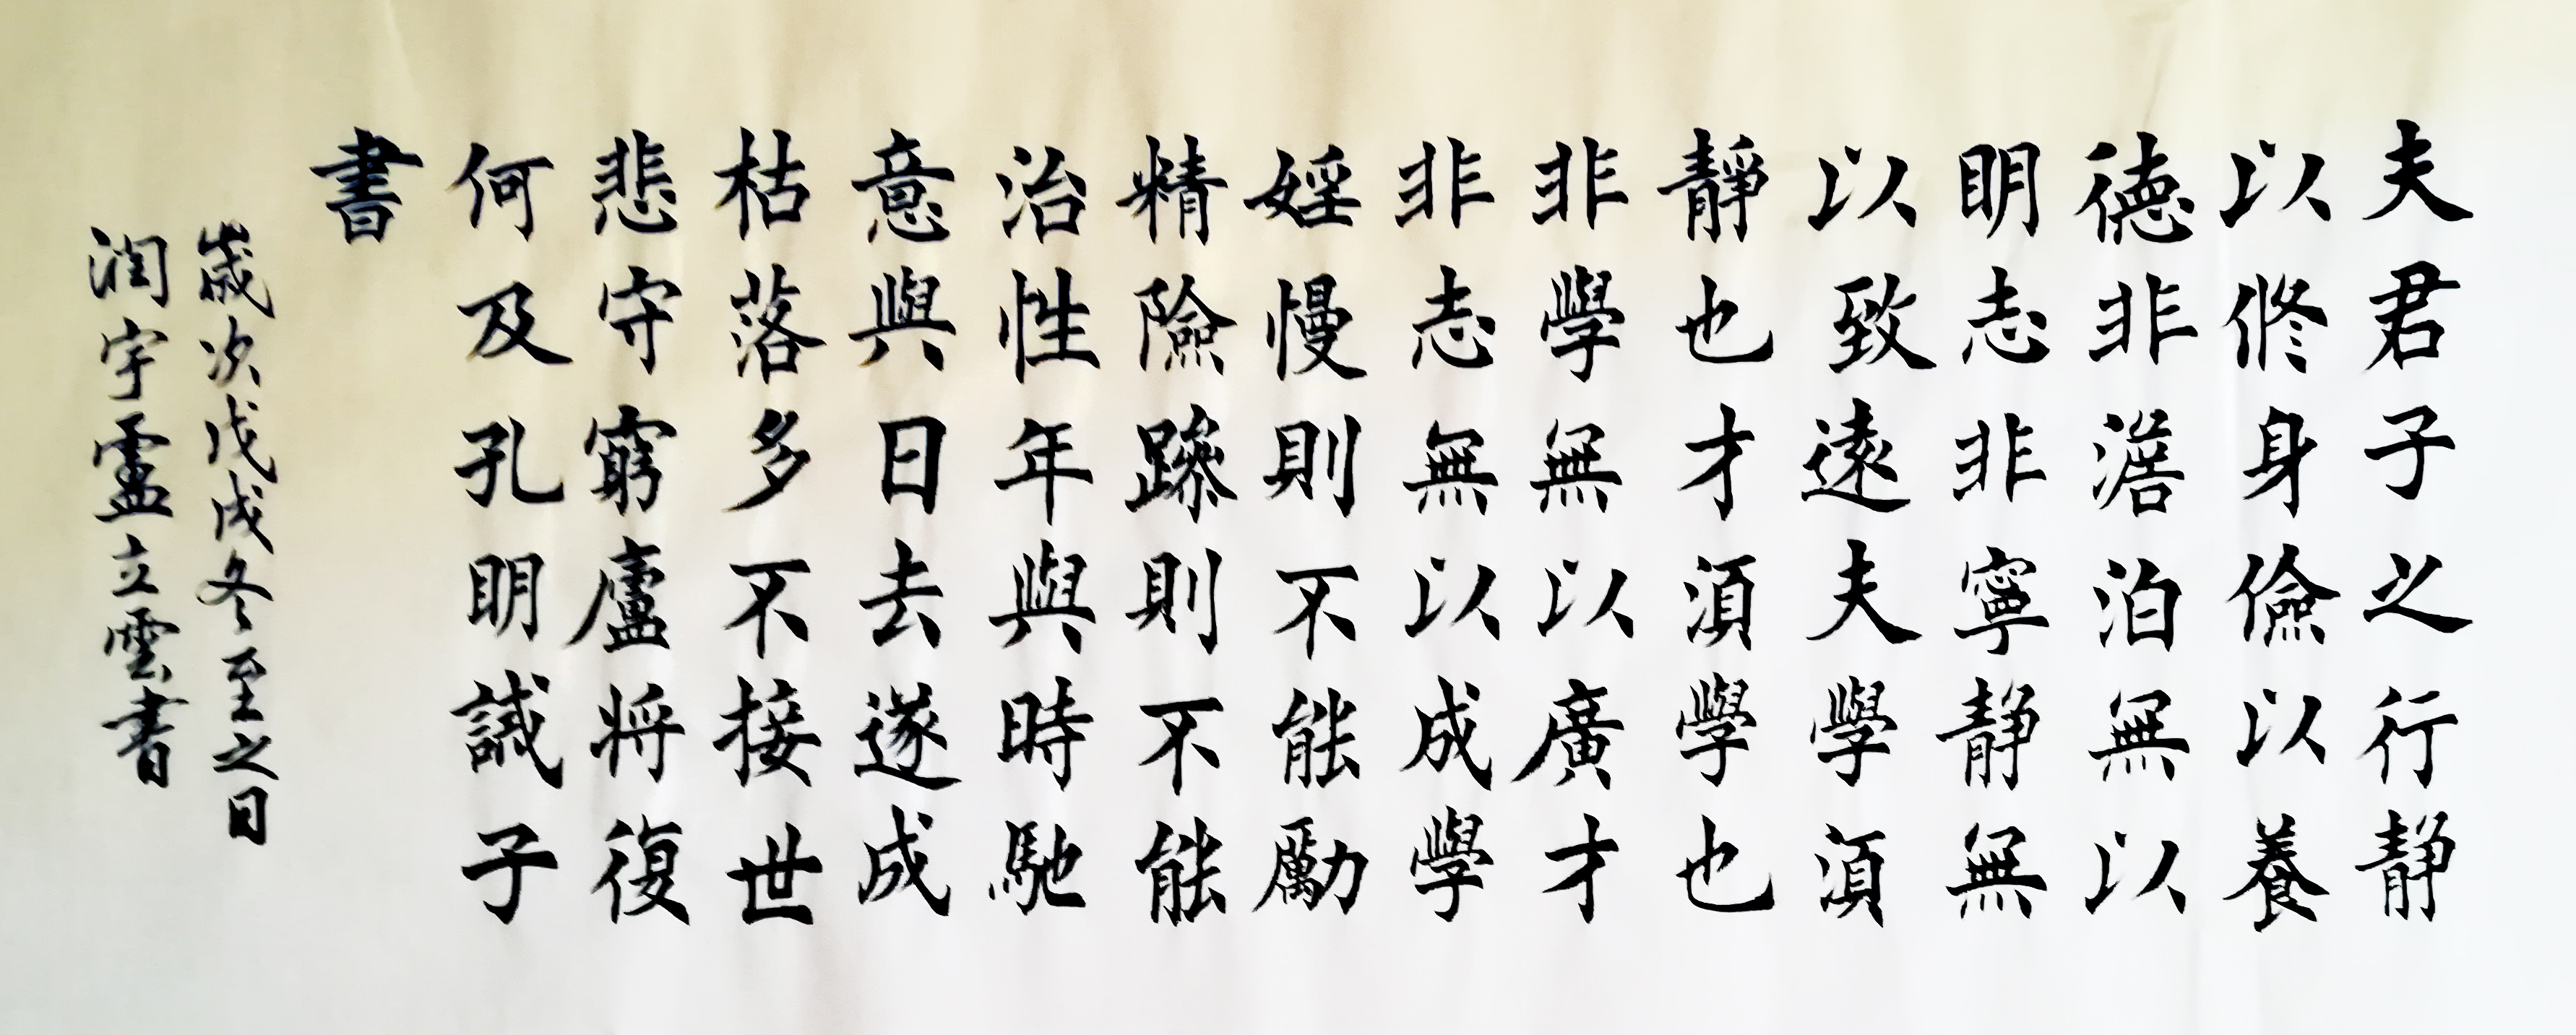 夫君子之行靜
以修身儉以養
德非澹泊無以
明志非寧靜無
以致遠夫學須
靜也才須學也
非學無以廣才
非志無以成學
婬慢則不能勵
精險躁則不能
治性年與時馳
意與日去遂成
枯落多不接世
悲守窮廬將復
何及孔明誡子
書
歲次戊戌冬至之日
潤宇盧立雲書